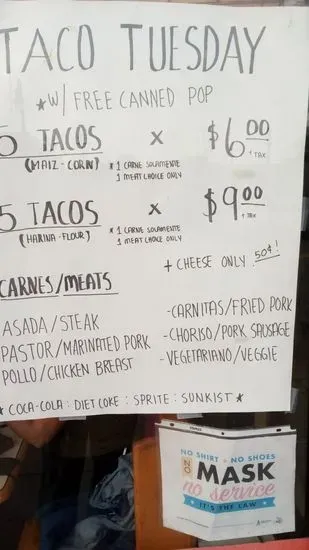 TACO TUESDAY
★ W/ FREE CANNED POP
5 TACOS X $6.00
(MAIZ-CORN) * 1 CARNE SOLAMENTE + TAX
1 MEAT CHOICE ONLY
5 TACOS X $9.00
(HARINA-FLOUR) * 1 CARNE SOLAMENTE + TAX
1 MEAT CHOICE ONLY
+ CHEESE ONLY 50¢!
CARNES/MEATS
ASADA/STEAK
PASTOR/MARINATED PORK
POLLO/CHICKEN BREAST
-CARNITAS/FRIED PORK
-CHORISO/PORK SAUSAGE
-VEGETARIANO/VEGGIE
★ COCA-COLA : DIET COKE : SPRITE : SUNKIST ★
NO SHIRT • NO SHOES
NO MASK
no service
IT'S THE LAW